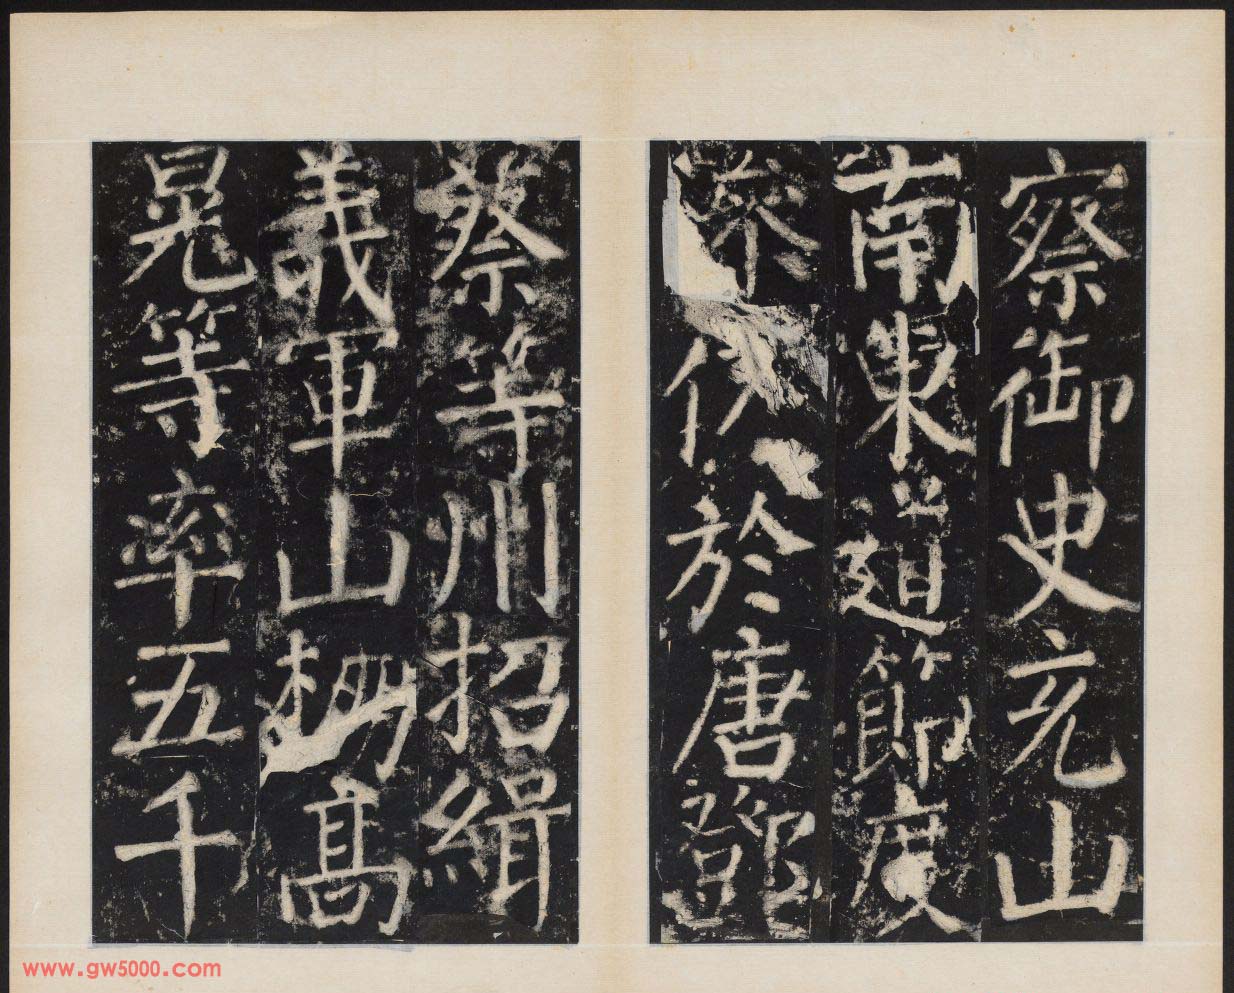 察御史充山
南東道節度
參於唐鄧
蔡等州招緝
義軍山棚高
晃等率五千
www.gw5000.com